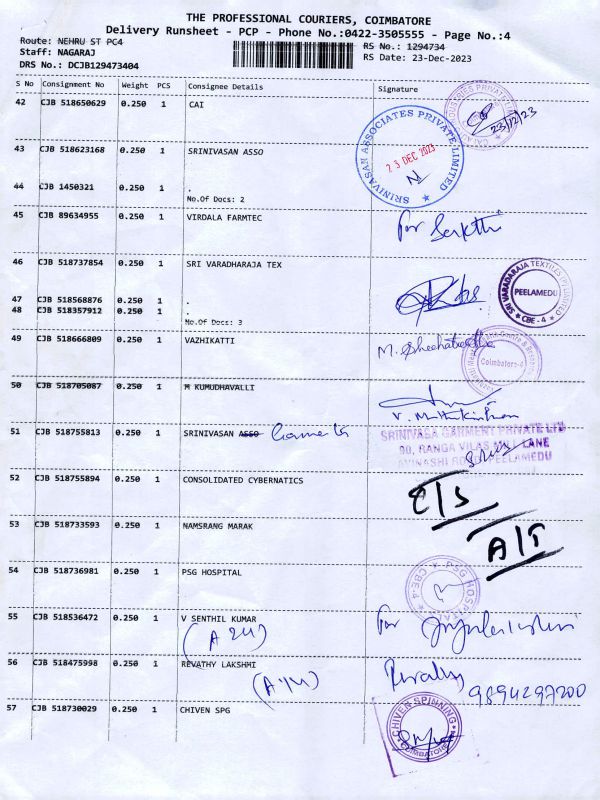 THE PROFESSIONAL COURIERS, COIMBATORE
Delivery Runsheet - PCP - Phone No.:0422-3505555 - Page No.:4
Route: NEHRU ST PC4
RS No.: 1294734
Staff: NAGARAJ
RS Date: 23-Dec-2023
DRS No.: DCJB129473404
S No Consignment No Weight PCS Consignee Details Signature
42 CJB 518650629 0.250 1 CAI
23/12/23
43 CJB 518623168 0.250 1 SRINIVASAN ASSO
SRINIVASAN ASSOCIATES PRIVATE LIMITED
23 DEC 2023
44 CJB 1450321 0.250 1 .
No.Of Docs: 2
45 CJB 89634955 0.250 1 VIRDALA FARMTEC
For Sakthi
46 CJB 518737854 0.250 1 SRI VARADHARAJA TEX
SRI VARADARAJA TEXTILES (P) LIMITED
PEELAMEDU
CBE - 4
47 CJB 518568876 0.250 1 .
48 CJB 518357912 0.250 1 .
No.Of Docs: 3
49 CJB 518666809 0.250 1 VAZHIKATTI
Coimbatore-4
50 CJB 518705087 0.250 1 M KUMUDHAVALLI
51 CJB 518755813 0.250 1 SRINIVASAN ASSO
SRINIVASA GARMENT PRIVATE LTD
90, RANGA VILAS MILL LANE
AVINASHI ROAD, PEELAMEDU
52 CJB 518755894 0.250 1 CONSOLIDATED CYBERNATICS
C/S
53 CJB 518733593 0.250 1 NAMSRANG MARAK
A/T
54 CJB 518736981 0.250 1 PSG HOSPITAL
PSG HOSPITAL
CBE-4
55 CJB 518536472 0.250 1 V SENTHIL KUMAR
For
56 CJB 518475998 0.250 1 REVATHY LAKSHMI
Revathy
9894297200
57 CJB 518730029 0.250 1 CHIVEN SPG
CHIVER SPINNING
COIMBATORE